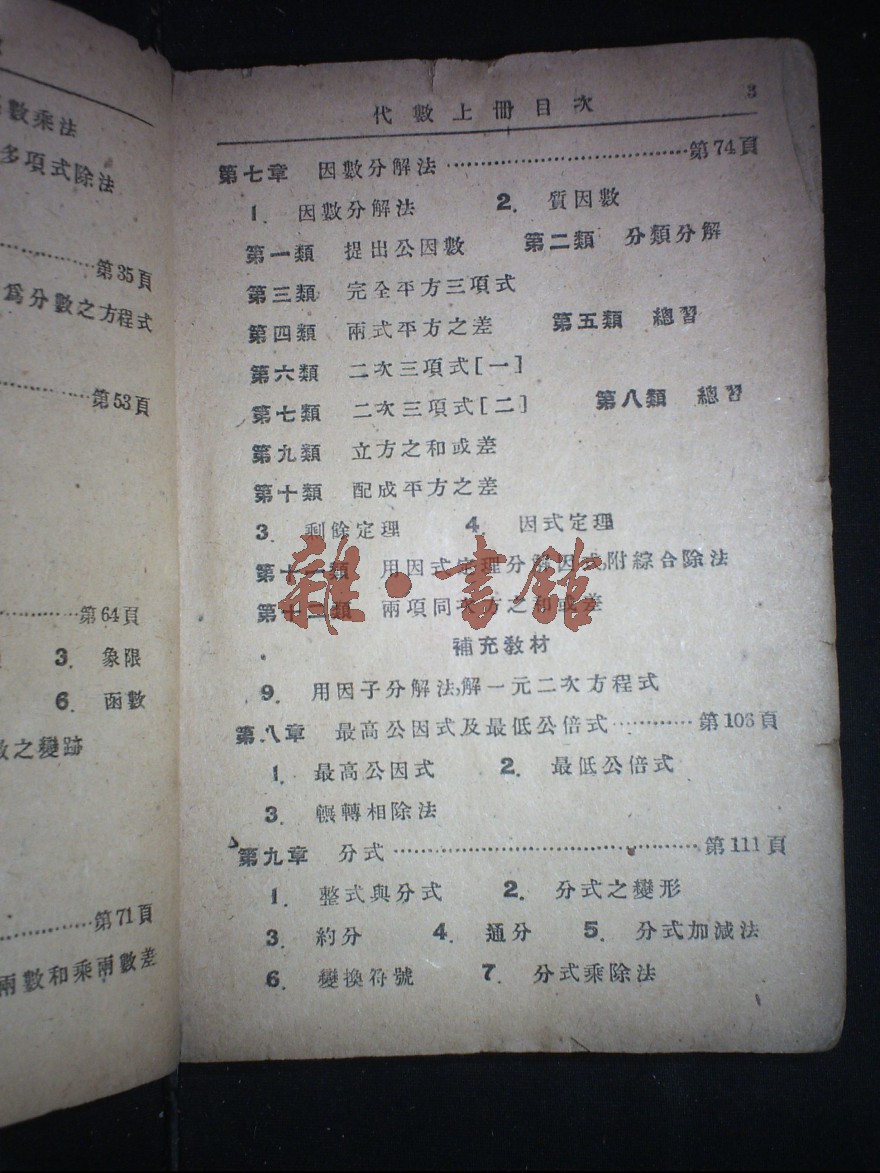 數乘法
多項式除法
第35頁
爲分數之方程式
第53頁
第64頁
3. 象限
6. 函數
之變跡
第71頁
兩數和乘兩數差
代數上冊目次 3
第七章 因數分解法 第74頁
1. 因數分解法 2. 質因數
第一類 提出公因數 第二類 分類分解
第三類 完全平方三項式
第四類 兩式平方之差 第五類 總習
第六類 二次三項式[一]
第七類 二次三項式[二] 第八類 總習
第九類 立方之和或差
第十類 配成平方之差
3. 剩餘定理 4 因式定理
第十一類 用因式定理分解因式,附綜合除法
第十二類 兩項同次方之和或差
補充教材
9. 用因子分解法,解一元二次方程式
第八章 最高公因式及最低公倍式 第106頁
1. 最高公因式 2. 最低公倍式
3. 輾轉相除法
第九章 分式 第111頁
1. 整式與分式 2. 分式之變形
3. 約分 4. 通分 5. 分式加減法
6. 變換符號 7. 分式乘除法
雜·書館